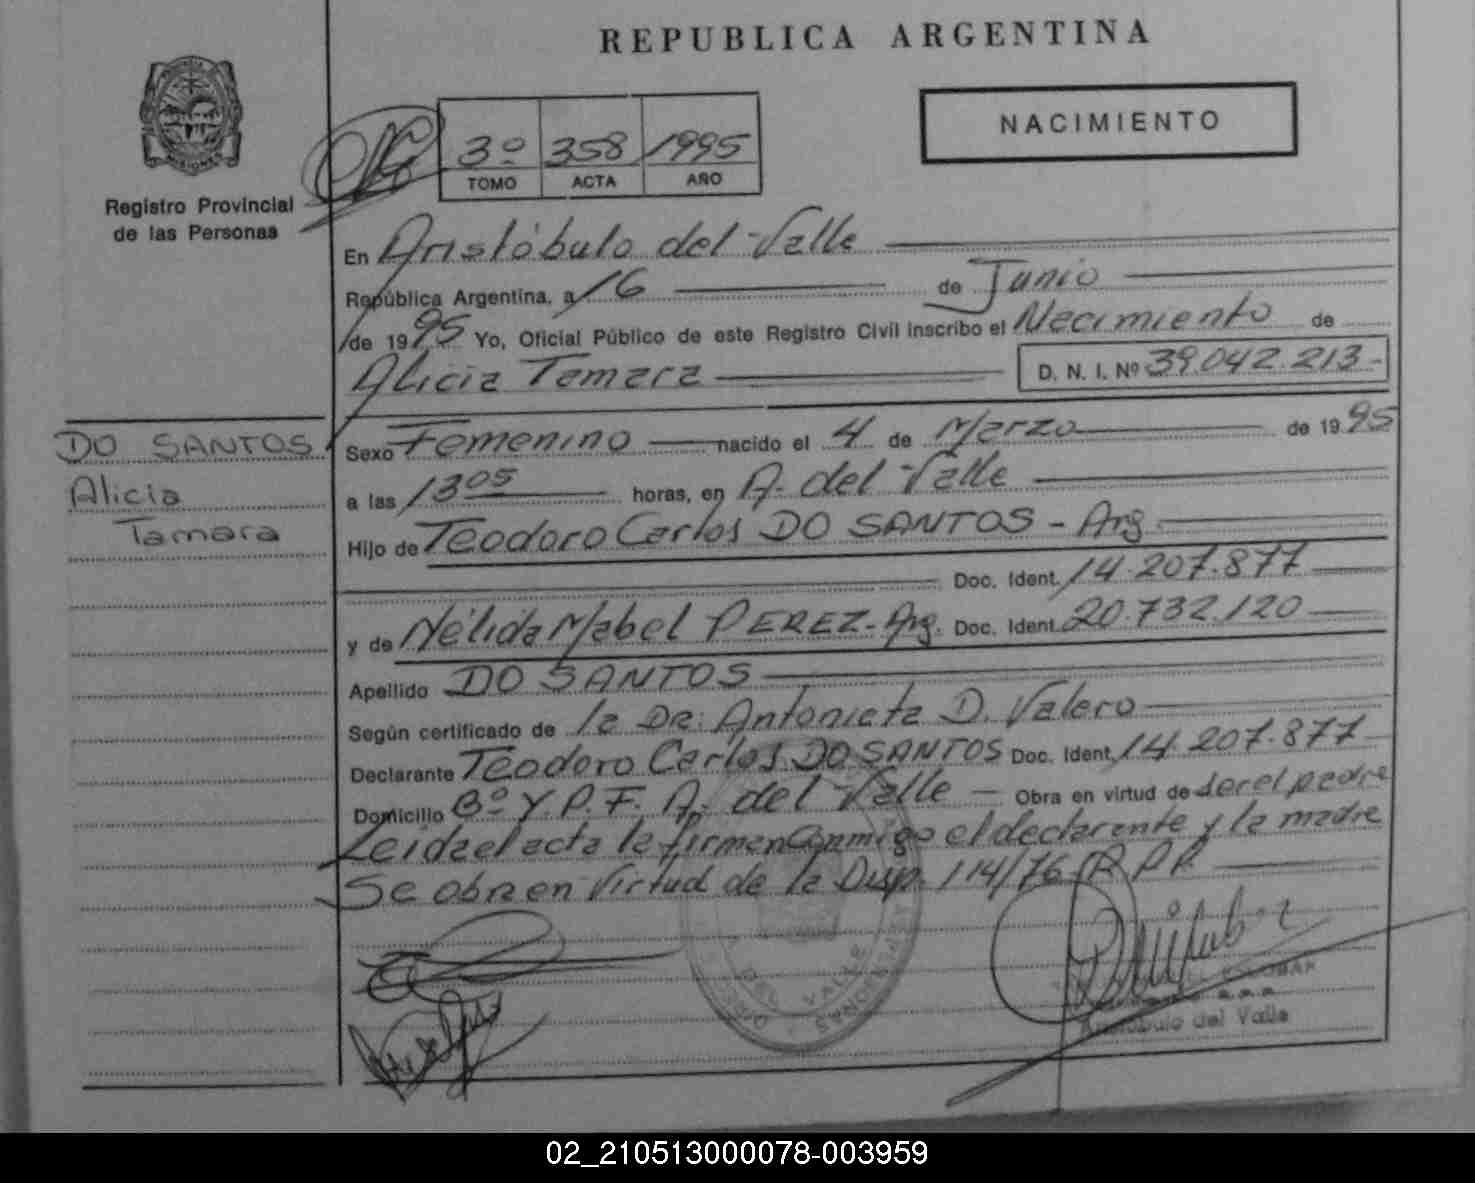 REPUBLICA ARGENTINA
NACIMIENTO
MISIONES
Registro Provincial
de las Personas
3º 358 1995
TOMO ACTA AÑO
En Aristóbulo del Valle
República Argentina, a 16 de Junio
de 1995 Yo, Oficial Público de este Registro Civil inscribo el Necimiento de
Alicia Tamara D. N. I. Nº 39.042.213-
DO SANTOS
Alicia
Tamara
Sexo Femenino nacido el 4 de Marzo de 1995
a las 13 05 horas, en A. del Valle
Hijo de Teodoro Carlos DO SANTOS - Arg
Doc. Ident. 14.207.877
y de Nélida Mabel PEREZ - Arg. Doc. Ident. 20.732.120
Apellido DO SANTOS
Según certificado de la Dra. Antonieta D. Valero
Declarante Teodoro Carlos DO SANTOS Doc. Ident. 14.207.877
Domicilio Bº Y.P.F. A. del Valle - Obra en virtud de ser el padre
Leida el acta la firman conmigo el declarante y la madre
Se obra en virtud de la Disp. 114/76 R P P.
DEL VALLE
ESCOBAR
Aristóbulo del Valle
02_210513000078-003959